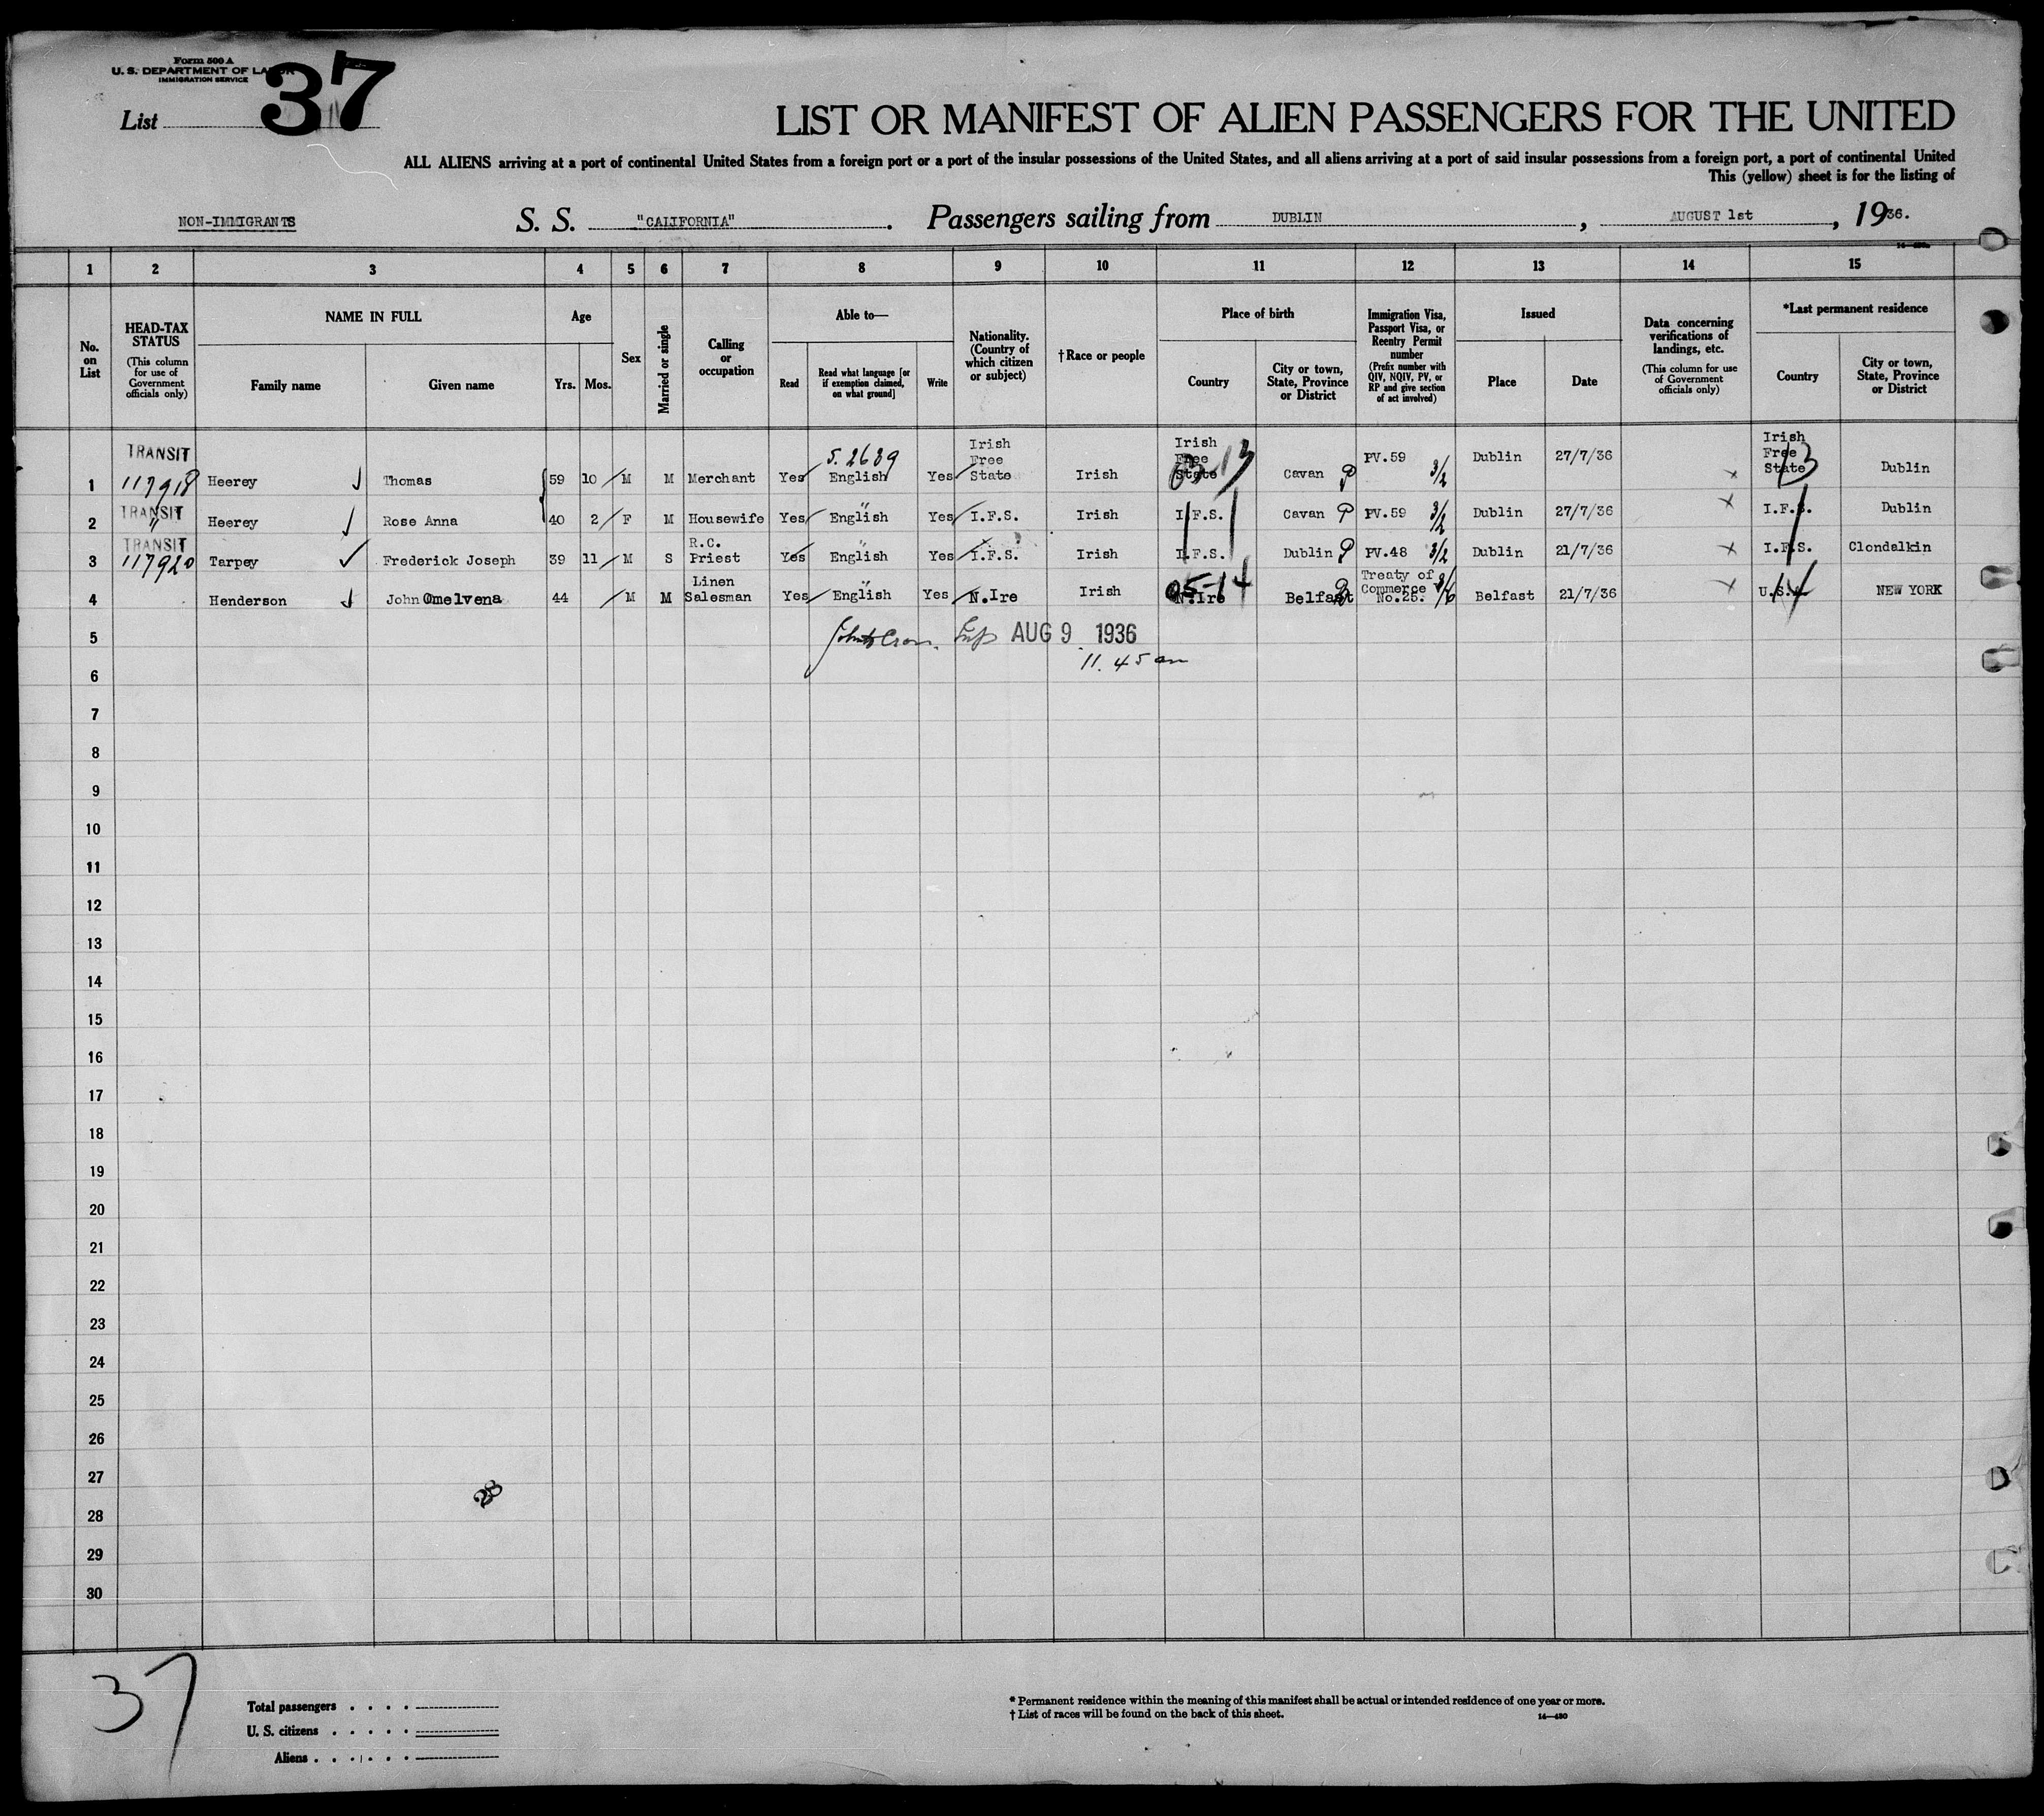 Form 500 A
U. S. DEPARTMENT OF LABOR
IMMIGRATION SERVICE
List 37
LIST OR MANIFEST OF ALIEN PASSENGERS FOR THE UNITED
ALL ALIENS arriving at a port of continental United States from a foreign port or a port of the insular possessions of the United States, and all aliens arriving at a port of said insular possessions from a foreign port, a port of continental United
This (yellow) sheet is for the listing of
NON-IMMIGRANTS S. S. "CALIFORNIA". Passengers sailing from DUBLIN, AUGUST 1st, 1936.
1 2 3 4 5 6 7 8 9 10 11 12 13 14 15
No. on List
HEAD-TAX STATUS
(This column for use of Government officials only)
NAME IN FULL
Family name
Given name
Age
Yrs. Mos.
Sex
Married or single
Calling or occupation
Able to—
Read
Read what language [or if exemption claimed, on what ground]
Write
Nationality. (Country of which citizen or subject)
†Race or people
Place of birth
Country
City or town, State, Province or District
Immigration Visa, Passport Visa, or Reentry Permit number
(Prefix number with QIV, NQIV, PV, or RP and give section of act involved)
Issued
Place
Date
Data concerning verifications of landings, etc.
(This column for use of Government officials only)
*Last permanent residence
Country
City or town, State, Province or District
1 TRANSIT 117918 Heerey Thomas 59 10 M M Merchant Yes 5.2639 English Yes Irish Free State Irish Irish Free State 03-13 Cavan PV.59 3/2 Dublin 27/7/36 x Irish Free State 13 Dublin
2 TRANSIT " Heerey Rose Anna 40 2 F M Housewife Yes English " Yes I.F.S. Irish I.F.S. Cavan PV.59 3/2 Dublin 27/7/36 x I.F.S. Dublin
3 TRANSIT 117920 Tarpey Frederick Joseph 39 11 M S R.C. Priest Yes English " Yes I.F.S. Irish I.F.S. Dublin PV.48 3/2 Dublin 21/7/36 x I.F.S. Clondalkin
4 Henderson John Omelvena 44 M M Linen Salesman Yes English " Yes N.Ire Irish N.Ire 05-14 Belfast Treaty of Commerce No.25. 3/6 Belfast 21/7/36 x U.S.A. 14 NEW YORK
5 AUG 9 1936
11.45 am
6
7
8
9
10
11
12
13
14
15
16
17
18
19
20
21
22
23
24
25
26
27
28
28
29
30
37
Total passengers . . . .
U. S. citizens . . . . .
Aliens . . . . . .
* Permanent residence within the meaning of this manifest shall be actual or intended residence of one year or more.
† List of races will be found on the back of this sheet.
14—430